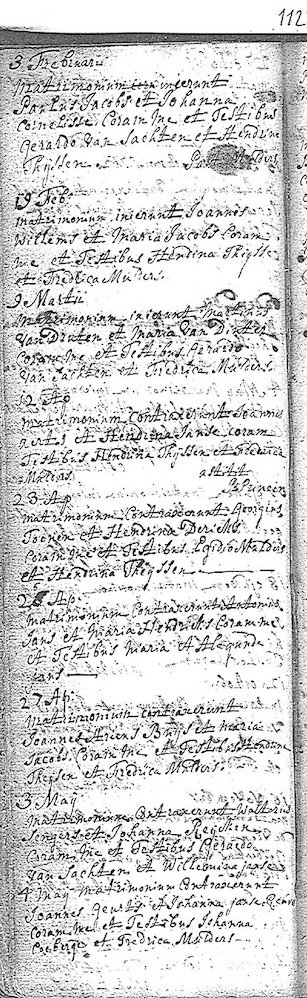 112
3 Febrinarii
matrimonium inierunt
Paulus Jacobs et Johanna
Cornelisse Coram me et Testibus
Gerardo Van Sachten et Hendrine
Thijssen Mulders
19 Feb.
matrimonium inierunt Joannes
Willems et Maria Jacobs Coram
me et Testibus Hendrina Thijssen
et Fredrica Mulders.
9 Martii
matrimonium inierunt Martinus
Van Druten et Maria Van Dinter
Coram me et Testibus Gerardo
Van Sachten et Fredrica Mulders
12 Ap
matrimonium Contraxerunt Joannes
Aerts et Hendrina Janse coram
Testibus Hendrina Thijssen et Frederica
Mulders
23 Ap
matrimonium Contraxerunt Georgius
Toenen et Hendrina Derks
Coram me et Testibus Egidio Mulders
et Hendrina Thijssen
26 Ap.
matrimonium Contraxerunt Antonius
Jans et Maria Hendriks Coram me
et Testibus Maria et Alegunde
Jans
27 Ap.
matrimonium contraxerunt
Joannes Ariens Buijs et maria
Jacobs Coram me et Testibus Hendrina
Thijsen et Fredrica Mulders
3 May
matrimonium Contraxerunt
et Johanna Reijken
Coram me et Testibus Gerardo
Van Sachten et Willemina Janse
4 May matrimonium Contraxerunt
Joannes et Johanna Janse
Coram me et Testibus Johanna
et Fredrica Mulders